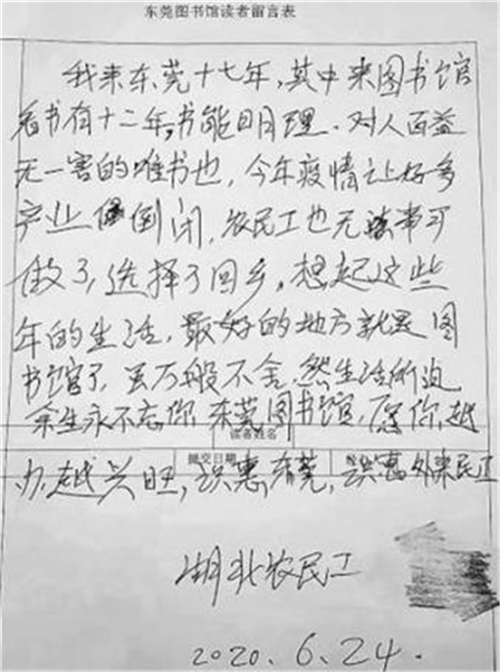 东莞图书馆读者留言表
我来东莞十七年,其中来图书馆
看书有十二年,书能明理、对人百益
无一害的唯书也,今年疫情让好多
产业倒闭,农民工也无事可
做了,选择了回乡,想起这些
年的生活,最好的地方就是图
书馆了,虽万般不舍,然生活所迫
余生永不忘你,东莞图书馆,愿你越
读者姓名
提交日期
办越兴旺,识惠东莞,识惠外来民工
湖北农民工
2020.6.24.